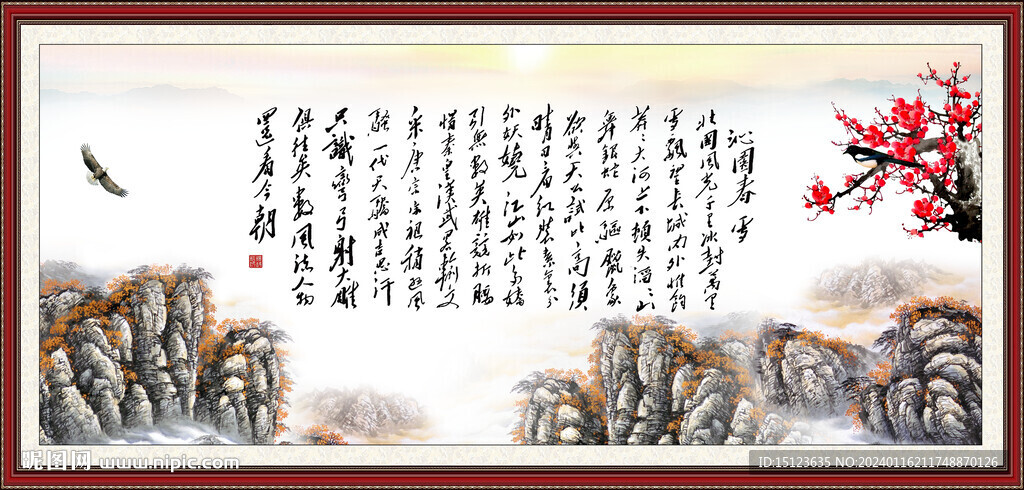 沁園春 雪
北國風光千里冰封萬里
雪飄望長城内外惟餘
莽々大河上下頓失滔々山
舞銀蛇原驅蠟象
欲與天公試比高須
晴日看紅裝素裹分
外妖嬈 江山如此多嬌
引無數英雄競折腰
惜秦皇漢武略輸文
采唐宗宋祖稍遜風
騷一代天驕成吉思汗
只識彎弓射大雕
俱往矣數風流人物
還看今朝
昵图网 www.nipic.com
ID:15123635 NO:20240116211748870126